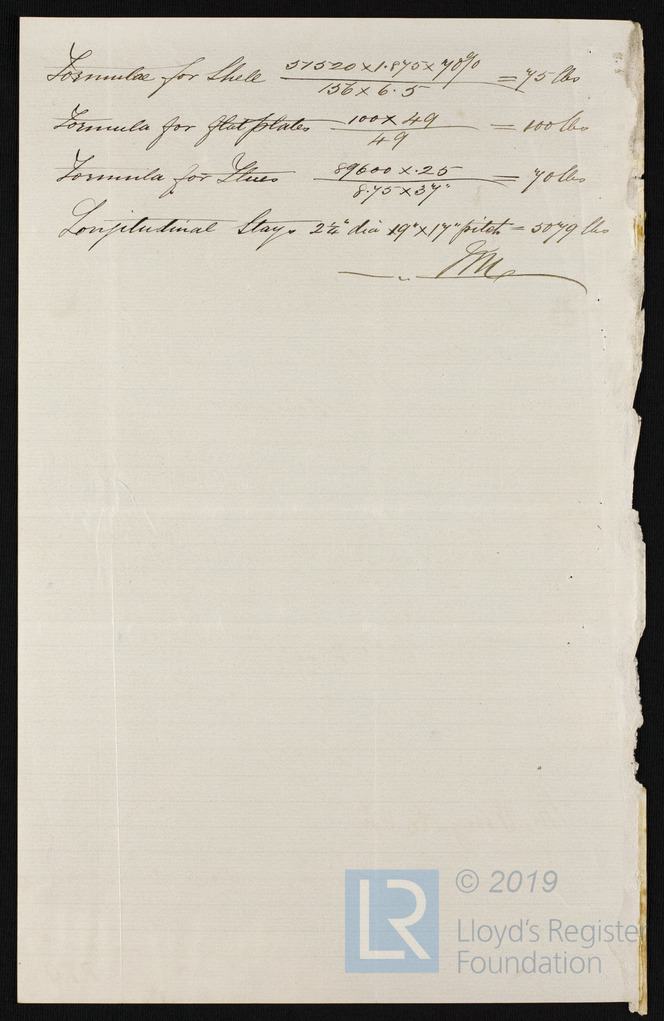 Formulae for Shell 57520 x 1.875 x 70% / 156 x 6.5 = 75 lbs
Formula for flat plates 100 x 49 / 49 = 100 lbs
Formula for Flues 89600 x .25 / 8.75 x 37" = 70 lbs
Longitudinal Stays 2¼" dia 19" x 17" pitch = 5079 lbs
© 2019
LR
Lloyd's Register
Foundation